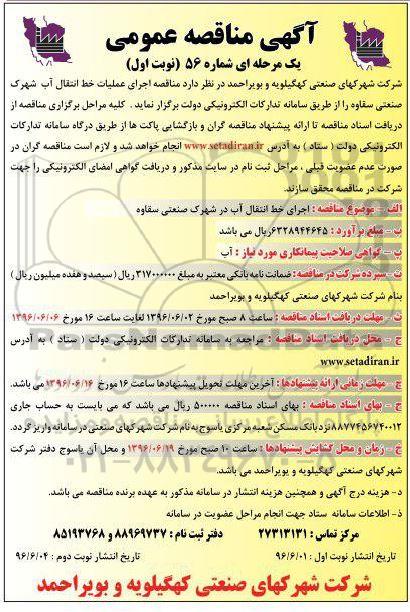 آگهی مناقصه عمومی
یک مرحله ای شماره ۵۶ (نوبت اول)
شرکت شهرکهای صنعتی کهگیلویه و بویراحمد در نظر دارد مناقصه اجرای عملیات خط انتقال آب شهرک
صنعتی سقاوه را از طریق سامانه تدارکات الکترونیکی دولت برگزار نماید . کلیه مراحل برگزاری مناقصه از
دریافت اسناد مناقصه تا ارائه پیشنهاد مناقصه گران و بازگشایی پاکت ها از طریق درگاه سامانه تدارکات
الکترونیکی دولت ( ستاد ) به آدرس www.setadiran.ir انجام خواهد شد و لازم است مناقصه گران در
صورت عدم عضویت قبلی ، مراحل ثبت نام در سایت مذکور و دریافت گواهی امضای الکترونیکی را جهت
شرکت در مناقصه محقق سازند.
الف - موضوع مناقصه : اجرای خط انتقال آب در شهرک صنعتی سقاوه
ب - مبلغ برآورد : ۶۳۲۸۹۴۴۶۴۵ریال می باشد
پ - گواهی صلاحیت پیمانکاری مورد نیاز : آب
ت - سپرده شرکت در مناقصه : ضمانت نامه بانکی معتبر به مبلغ ۳۱۷۰۰۰۰۰۰ ریال ( سیصد و هفده میلیون ریال )
بنام شرکت شهرکهای صنعتی کهگیلویه و بویراحمد
ث - مهلت دریافت اسناد مناقصه : ساعت ۸ صبح مورخ ۱۳۹۶/۰۶/۰۲ لغایت ساعت ۱۶ مورخ ۱۳۹۶/۰۶/۰۶
ج - محل دریافت اسناد مناقصه : مراجعه به سامانه تدارکات الکترونیکی دولت ( ستاد ) به آدرس
www.setadiran.ir
چ - مهلت زمانی ارائه پیشنهادها : آخرین مهلت تحویل پیشنهادها ساعت ۱۶ مورخ ۱۳۹۶/۰۶/۱۶ می باشد.
ح - بهای اسناد مناقصه : بهای اسناد مناقصه ۵۰۰۰۰۰ ریال می باشد که می بایست به حساب جاری
۸۸۷۷۴۵۶۷۴۰۰۱۲ نزد بانک مسکن شعبه مرکزی یاسوج به نام شرکت شهرکهای صنعتی در سامانه واریز گردد.
خ - زمان و محل گشایش پیشنهادها : ساعت ۱۰ صبح مورخ ۱۳۹۶/۰۶/۱۹ و محل آن یاسوج دفتر شرکت
شهرکهای صنعتی کهگیلویه و بویراحمد می باشد.
د- هزینه درج آگهی و همچنین هزینه انتشار در سامانه مذکور به عهده برنده مناقصه می باشد.
ذ- اطلاعات سامانه ستاد جهت انجام مراحل عضویت در سامانه
مرکز تماس : ۲۷۳۱۳۱۳۱ دفتر ثبت نام : ۸۸۹۶۹۷۳۷ و ۸۵۱۹۳۷۶۸
تاریخ انتشار نوبت اول : ۹۶/۶/۰۱ تاریخ انتشار نوبت دوم : ۹۶/۶/۰۴
شرکت شهرکهای صنعتی کهگیلویه و بویراحمد